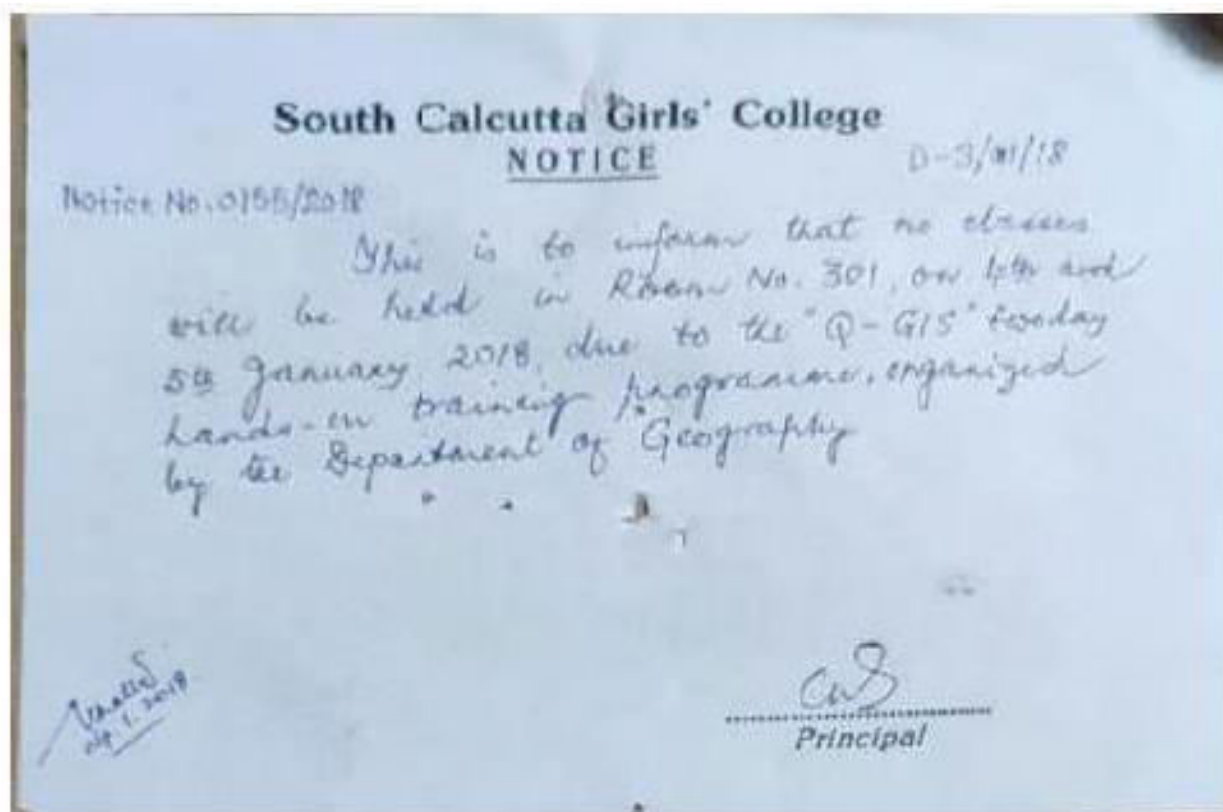 South Calcutta Girls' College
NOTICE
D-3/01/18
Notice No. 0155/2018
This is to inform that no classes
will be held in Room No. 301, on 4th and
5th January 2018, due to the "Q-GIS" twoday
hands-on training programme, organized
by the Department of Geography
Principal